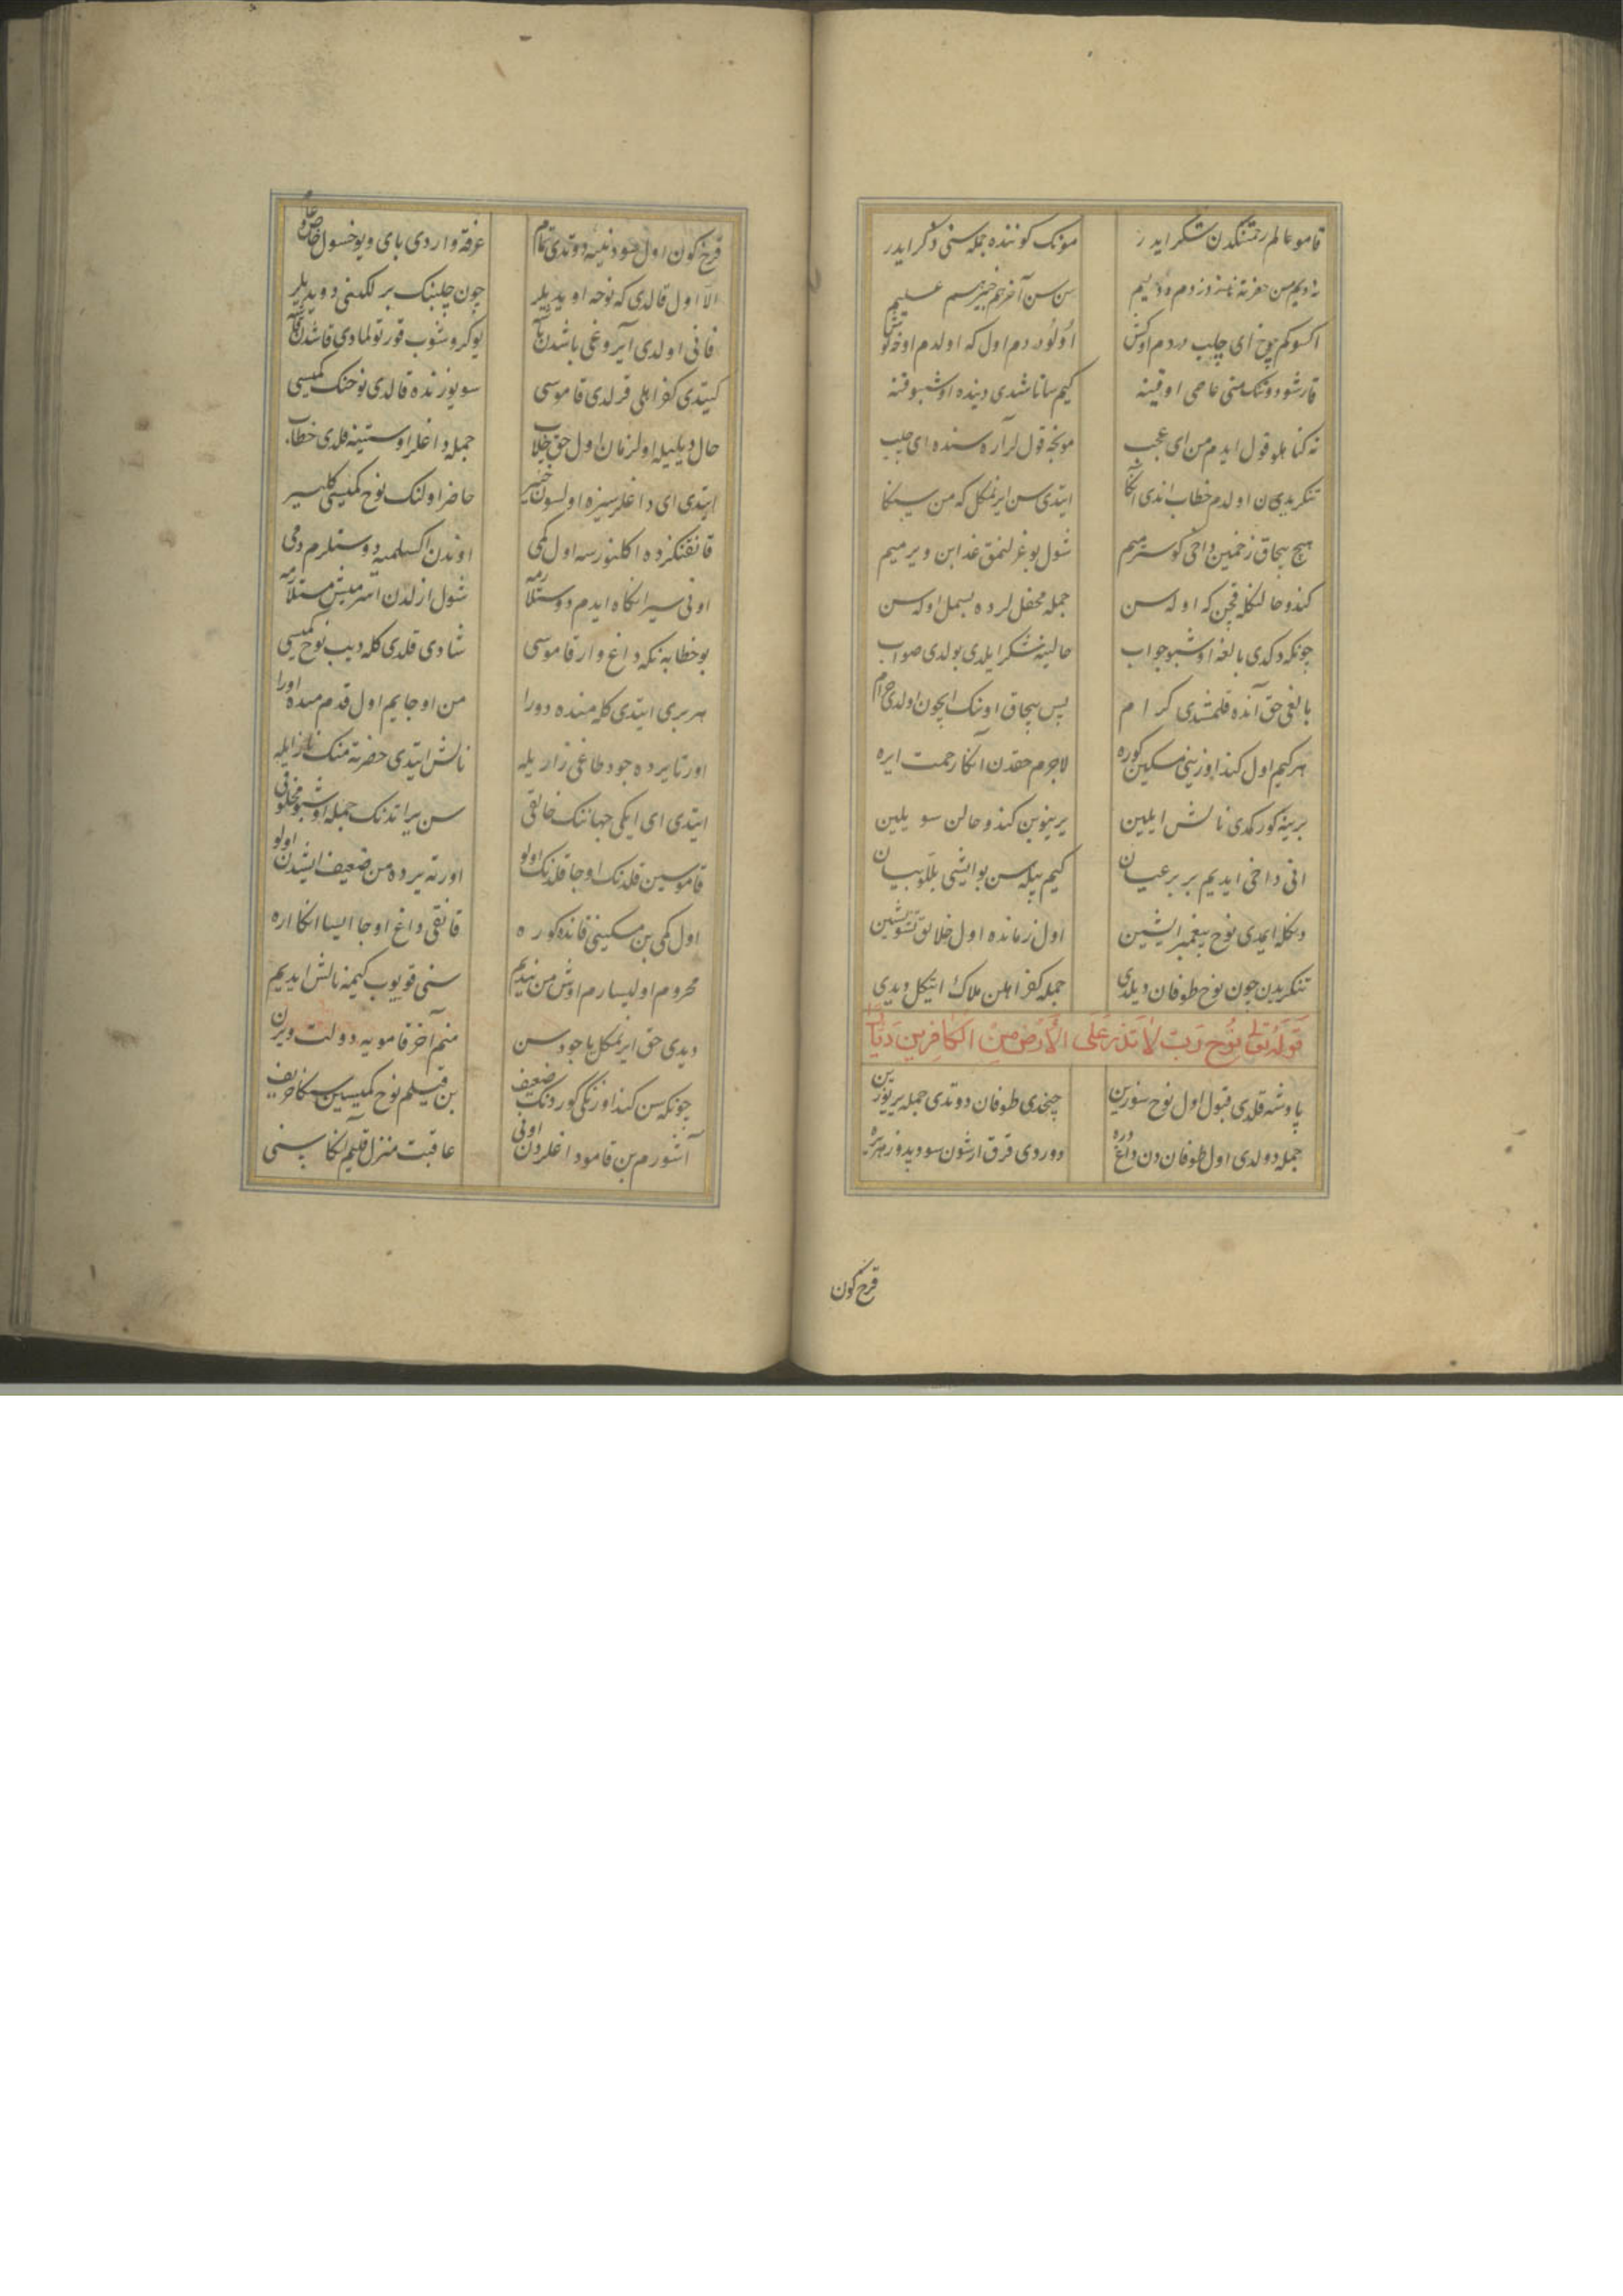 قامو عالم رحمتنکدن شکر ایدر مونک کوننده جمله سنی ذکر ایدر
سن سن آخر هم خبیر هم علیم
اکسوکم چوخ ای چلب دردم اوکش اولودردم اول که اولدم اوخه توش
قارشو دوتنک منی عاصی اوقینه کیم ساتاشدی دینده اوشبو قنه
نه کناهلو قول ایدم من ای عجب مونجه قوللر آره سنده ای چلب
تنکریدن اولدم خطاب اندی انکا ایتدی سن ایرنمکل که من سینکا
هیچ بچاق زخمین داخی کوسترمیم شول بوغزلنمق عذابن ویرمیم
کندو حالنکله قچن که اوله سن جمله محفللرده بسمل اوله سن
چونکه دکدی بالغه اوشبو جواب حالینه شکر ایلدی بولدی صواب
بالغی حق آنده قلمشدی کرام پس بچاق اوننک ایچون اولدی حرام
هر کیم اول کنداوزینی مسکین کوره لاجرم حقدن انکا رحمت ایره
برینه کورکدی نالش ایلین یرینوبن کندو حالن سویلین
انی داخی ایدیم بربر عیان کیم بیله سن بو ایشی بللو بیان
دنکله ایمدی نوح پیغمبر ایشین اول زمانده اول خلایق تشویشین
تنکریدن چون نوح طوفان دیلدی جمله کفر اهلن هلاک ایتکل دیدی
قوله تعالی نوح رب لا تذر علی الارض من الکافرین دیارا
پادشه قلدی قبول اول نوح سوزین چیخدی طوفان دوتدی جمله یر یوزین
جمله دولدی اول طوفاندن داغ دره دوردی قرق ارشون سو دیدوز هر یره
قرخ کون
قرخ کون اول سو دنییه دوتدی تمام غرقه واردی بای ویوخسول خاص و عام
الا اول قالدی که نوحه اویدیلر چون چلبنک برلکینی دویدیلر
فانی اولدی آیروغی باشدن باشا یوکروشوب قورتولمادی قاشدن قاشا
کیتدی کفر اهلی قرلدی قاموسی سو یوزنده قالدی نوحنک کمیسی
حال دیلیله اولزمان اول حق چلاب جمله داغلر اوستینه قلدی خطاب
ایتدی ای داغلر سیزه اولسون خبر حاضر اولنک نوح کمیسی کلیسر
قانقنکزده اکلنورسه اول کمی اوندن اکسلمیه دوستلرم دمی
اونی سیرانکاه ایدم دوستلارمه شول ازلدن اسرمیش مستلارمه
بو خطابه نکه داغ وار قاموسی شادی قلدی کله دیب نوح کمیسی
هر بری ایتدی کله منده دورا من اوجایم اول قدم منده اورا
اورتا یرده جود طاغی زاریله نالش ایتدی حضرته منک نازایله
ایتدی ای ایکی جهاننک خالقی سن یراتدنک جمله اوشبو مخلوقی
قاموسین قلدنک اوجا قلدنک اولو اورته یرده من ضعیف ایشدن اولو
اول کمی بن مسکینی قانده کوره قانقی داغ اوجا ایسا انکا اره
محروم اولیسارم اوش من نیدیم سنی قویوب کیمه نالش ایدیم
دیدی حق ایرنمکل یا جود سن منم آخر قامویه دولت ویرن
چونکه سن کنداوزنکی کوردنک ضعیف بن قیلم نوح کمیسین سنکا حریف
آشورم بن قامو داغلردن اونی عاقبت منزل قلیم آنکا سنی